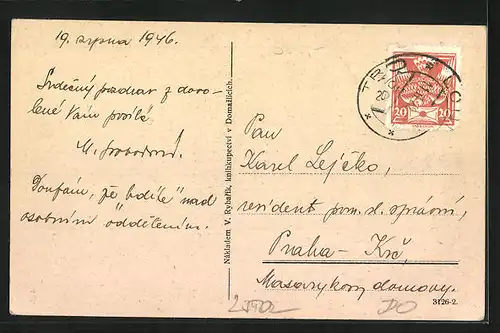 19. srpna 1946.
Srdečný pozdrav z dovo-
lené Vám posílá
M. Svobodová.
Doufám, že "bdíte" nad
osobním "oddělením.
Nákladem V. Rybařík, knihkupectví v Domažlicích.
20 20
Pan
Karel Lejčko,
resident pom. sl. správní,
Praha - Krč,
Masarykovy domovy.
3126-2.